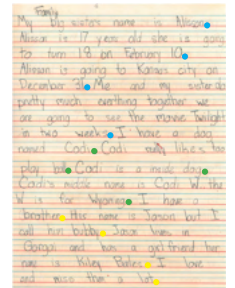 Family
My big sister's name is Alison.
Alison is 17 years old she is going
to turn 18 on February 10.
Alison is going to Kansas city on
December 31. Me and my sister do
pretty much everthing together we
are going to see the movie Twilight
in two weeks. I have a dog
named Cadi. Cadi likes to
play ball. Cadi is a inside dog.
Cadi's middle name is Cadi W. the
W is for Wyoming. I have a
brother. His name is Jason but I
call him bubby. Jason lives in
and has a girl friend her
name is Kiley I love
and miss them a lot.